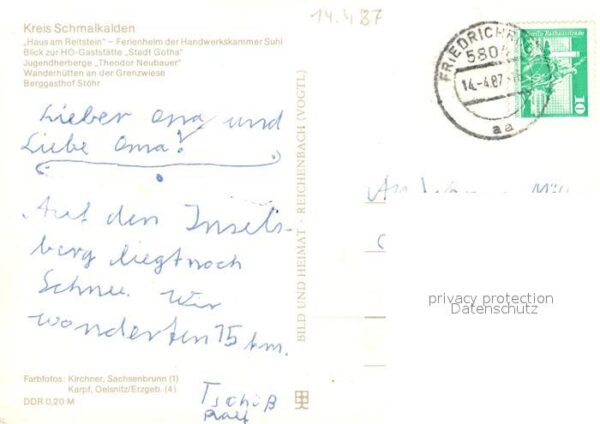 14.4.87
Kreis Schmalkalden
„Haus am Reitstein" – Ferienheim der Handwerkskammer Suhl
Blick zur HO-Gaststätte „Stadt Gotha"
Jugendherberge „Theodor Neubauer"
Wanderhütten an der Grenzwiese
Berggasthof Stöhr
5804
14.-4.87
aa
10
Lieber Opa und
Liebe Oma!
Auf dem Insels-
berg liegt noch
Schnee. Wir
wonderten 15 km.
Tschüß
Ralf
BILD UND HEIMAT · REICHENBACH (VOGTL)
An
privacy protection
Datenschutz
Farbfotos: Kirchner, Sachsenbrunn (1)
Karpf, Oelsnitz/Erzgeb. (4)
DDR 0,20 M